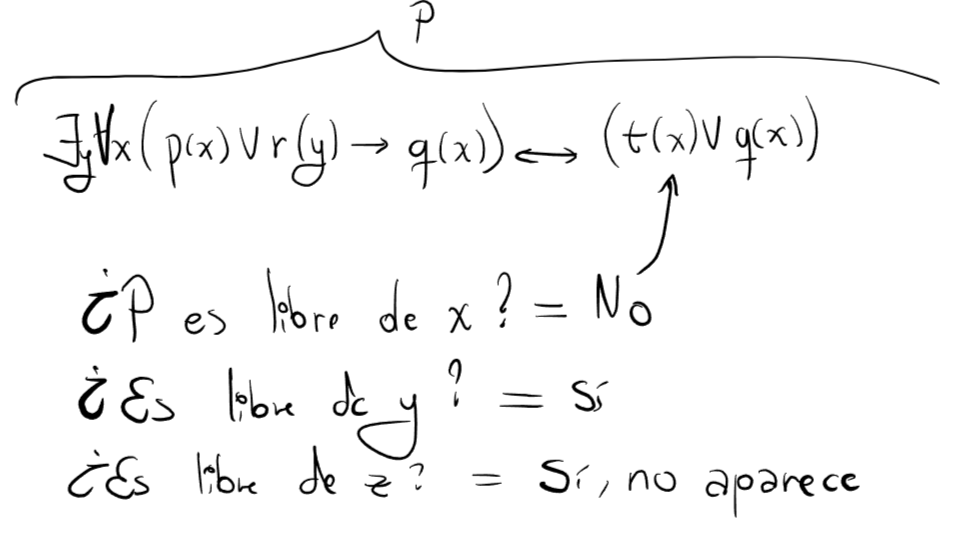 P
∃y∀x(p(x)∨r(y)→q(x))↔(t(x)∨q(x))
¿P es libre de x? = No
¿Es libre de y? = Sí
¿Es libre de z? = Sí, no aparece